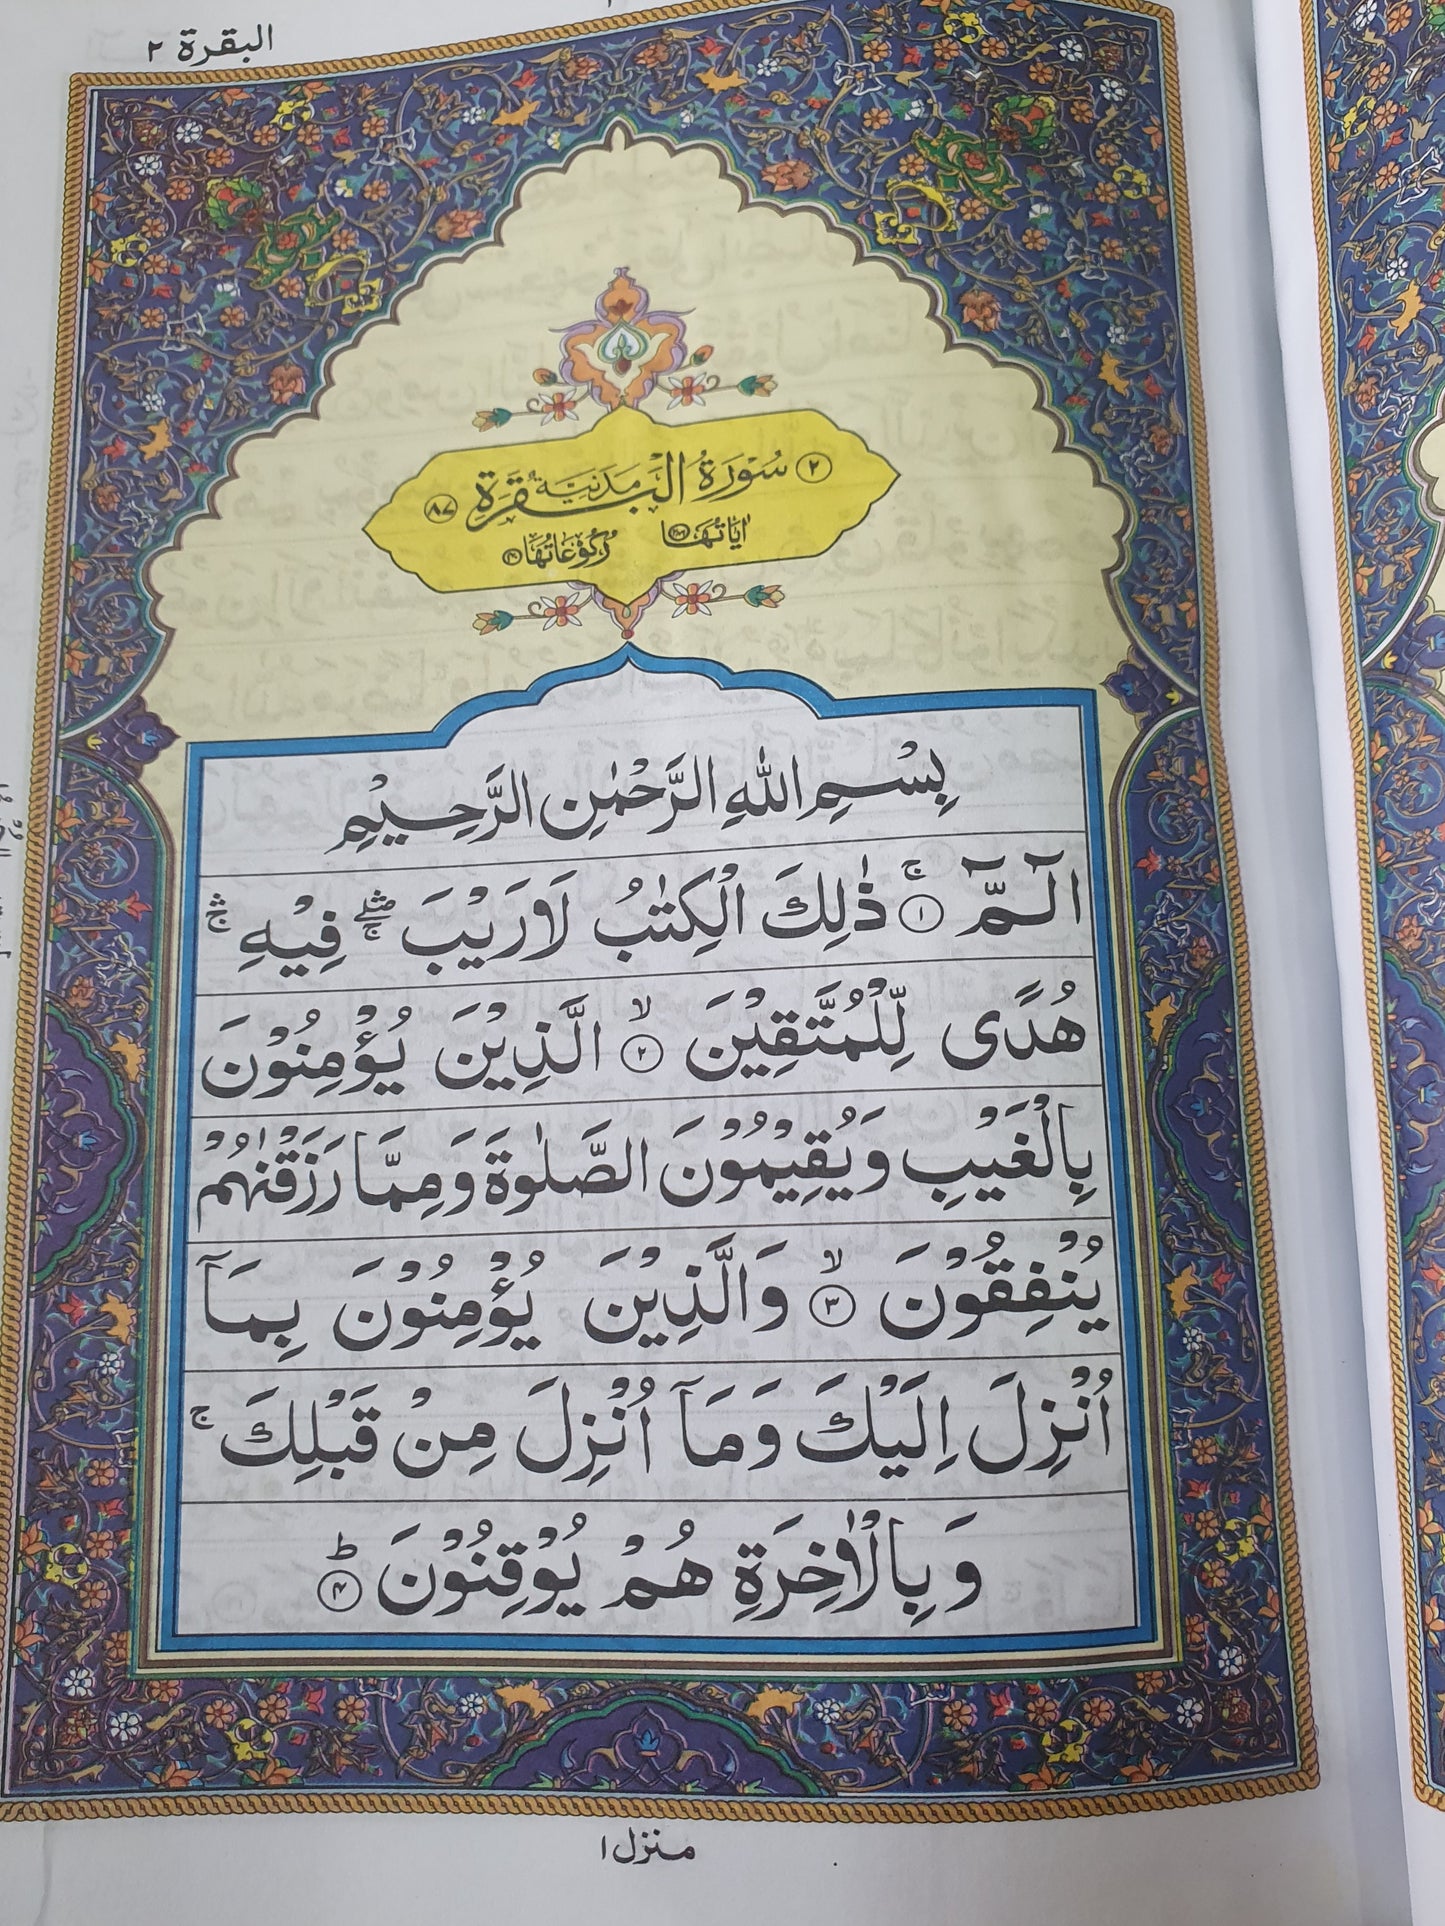 البقرة ٢
٢ سُوْرَةُ الْبَقَرَةِ مَدَنِيَّةٌ ٨٧
اٰيَاتُهَا ٢٨٦ رُكُوْعَاتُهَا ٤٠
بِسْمِ اللّٰهِ الرَّحْمٰنِ الرَّحِيْمِ
الٓمّٓ ۚ‏ ١ ذٰلِكَ الْكِتٰبُ لَا رَيْبَ ۛۖۚ فِيْهِ ۛۚ
هُدًى لِّلْمُتَّقِيْنَ ۙ‏ ٢ الَّذِيْنَ يُؤْمِنُوْنَ
بِالْغَيْبِ وَيُقِيْمُوْنَ الصَّلٰوةَ وَمِمَّا رَزَقْنٰهُمْ
يُنْفِقُوْنَ ۙ‏ ٣ وَالَّذِيْنَ يُؤْمِنُوْنَ بِمَآ
اُنْزِلَ اِلَيْكَ وَمَآ اُنْزِلَ مِنْ قَبْلِكَ ۚ
وَبِالْاٰخِرَةِ هُمْ يُوْقِنُوْنَ ؕ‏ ٤
منزل ١